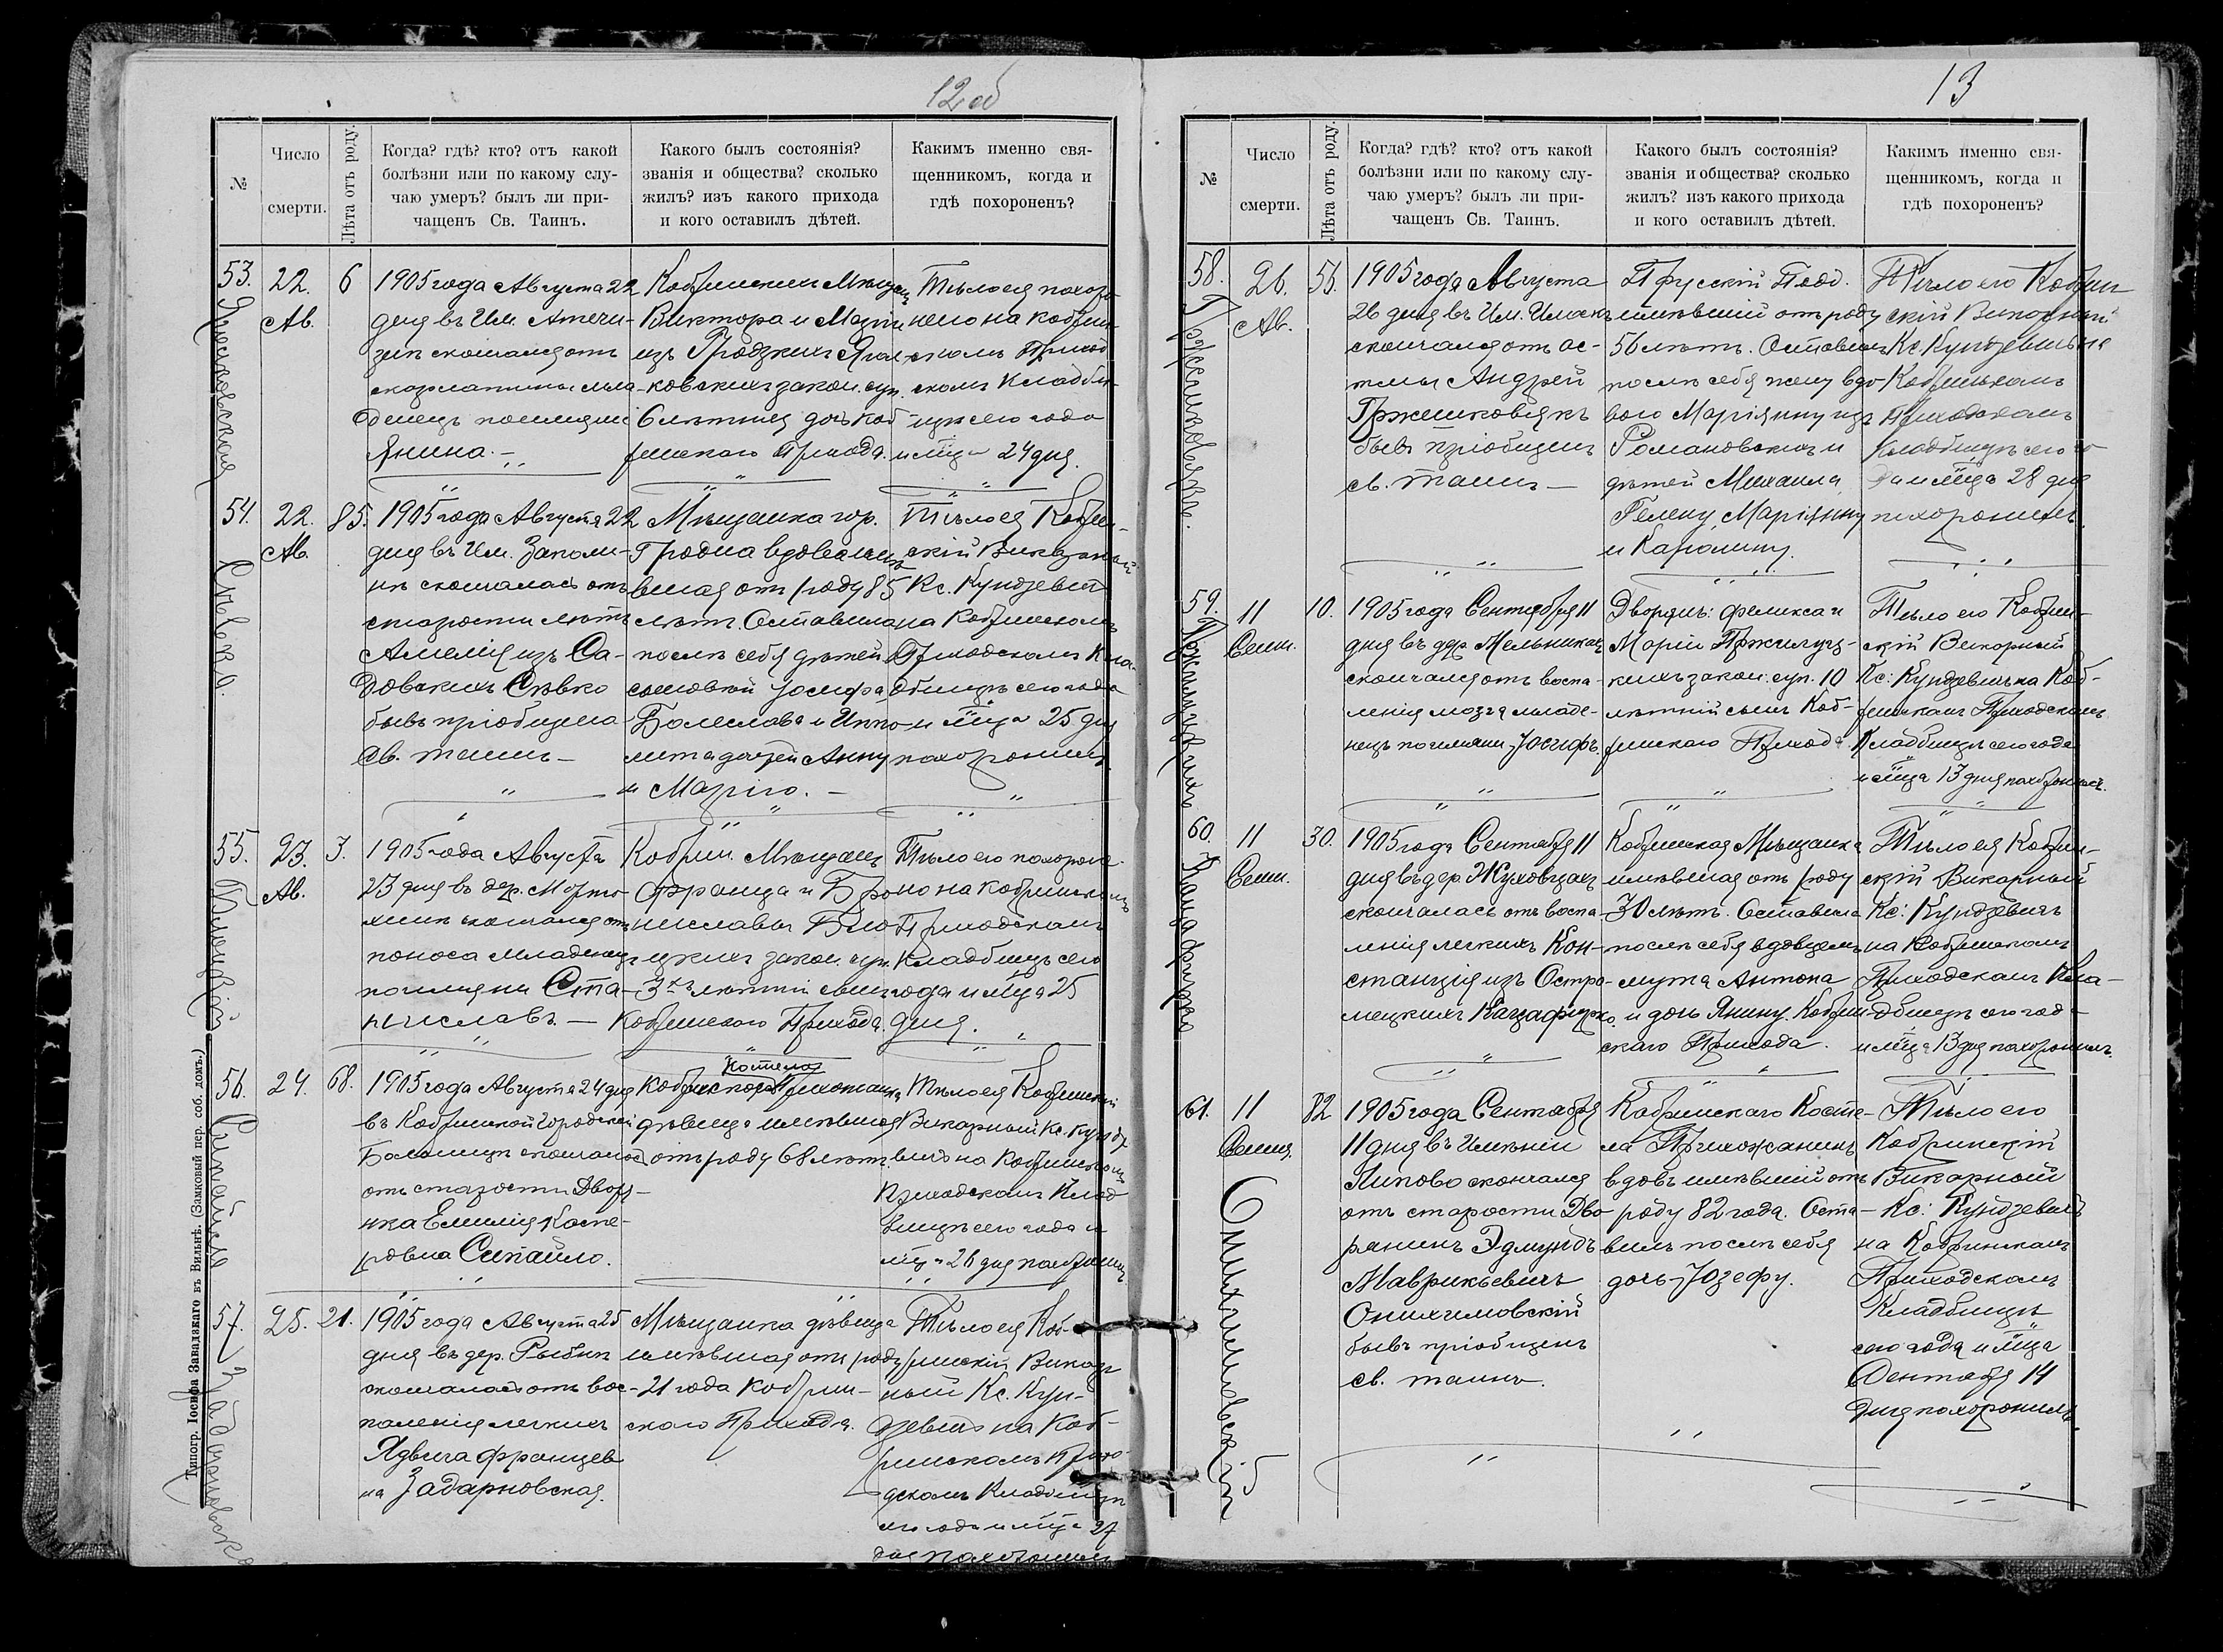 12об
№
Число
смерти.
Лѣта отъ роду.
Когда? гдѣ? кто? отъ какой
болѣзни или по какому слу-
чаю умеръ? былъ ли при-
чащенъ Св. Таинъ.
Какого былъ состоянія?
званія и общества? сколько
жилъ? изъ какого прихода
и кого оставилъ дѣтей.
Какимъ именно свя-
щенникомъ, когда и
гдѣ похороненъ?
53.
22.
Ав.
6
1905 года Августа 22
дня въ Им.
скончался отъ
скарлатины мла-
денецъ по имени
Янина. —
Кобринскихъ Мѣщан
Виктора и Маріи
изъ Гродзкихъ
ковскихъ закон. суп.
6 лѣтняя дочь Коб-
ринскаго Прихода.
Тѣло ея похоро-
нено на Кобрин-
скомъ Приход
скомъ Кладби-
щѣ сего года
и м҃ца 24 дня.
54.
Сѣвко.
22.
Ав.
85.
1905 года Августа 22
дня въ Им. Заполи-
нѣ скончалась отъ
старости лѣтъ
Амелія изъ Са-
довскихъ Сѣвко
бывъ пріобщена
Св. таинъ —
Мѣщанка гор.
Гродна вдова имѣ
вшая отъ роду 85
лѣтъ. Оставила
послѣ себя дѣтей
сыновей Іосифа
Болеслава и Иппо-
лита дочерей Анну
и Марію. —
Тѣло ея Кобрин-
скій Викарный
Кс. Кундзевичъ
на Кобринскомъ
Приходскомъ Кла-
дбищѣ сего года
и м҃ца 25 дня
похоронилъ.
55.
23.
Ав.
3.
1905 года Августа
23 дня въ дер.
скончался отъ
поноса младенецъ
по имени Ста-
ниславъ. —
Кобрин. Мѣщанъ
Франца и Бро
ниславы
цкихъ закон. суп.
3хъ лѣтній сынъ
Кобринскаго Прихода.
Тѣло его похороне-
но на Кобринскомъ
Приходскомъ
Кладбищѣ сего
года и м҃ца 25
дня.
56.
Ситайло
24.
68.
1905 года Августа 24 дня
въ Кобринской Городской
Больницѣ скончалась
отъ старости Дворя-
нка Емилія Каспе-
ровна Ситайло.
Костела
Кобринскаго Прихожанка
дѣвица имѣвшая
отъ роду 68 лѣтъ.
Тѣло ея Кобринскій
Викарный Кс. Кундзе
вичъ на Кобринскомъ
Приходскомъ Клад
бищѣ сего года и
м҃ца 26 дня похоронилъ
57.
Задарновская
25.
21.
1905 года Августа 25
дня въ дер. Рыбнѣ
скончалась отъ вос-
паленія легкихъ
Ядвига Францев
на Задарновская.
Мѣщанка дѣвица
имѣвшая отъ роду
21 года Кобрин-
скаго Прихода.
Тѣло ея Коб-
ринскій Викар
ный Кс. Кун-
дзевичъ на Коб-
ринскомъ Прихо-
дскомъ Кладбищѣ
сего года и м҃ца 27
дня похоронилъ
Типогр. Іосифа Завадзкаго въ Вильнѣ. (Замковый пер. соб. домъ.)
13
№
Число
смерти.
Лѣта отъ роду.
Когда? гдѣ? кто? отъ какой
болѣзни или по какому слу-
чаю умеръ? былъ ли при-
чащенъ Св. Таинъ.
Какого былъ состоянія?
званія и общества? сколько
жилъ? изъ какого прихода
и кого оставилъ дѣтей.
Какимъ именно свя-
щенникомъ, когда и
гдѣ похороненъ?
58.
Гржешковякъ.
26.
Ав.
56.
1905 года Августа
26 дня въ Им.
скончался отъ ас-
тмы Андрей
Гржешковякъ
бывъ пріобщенъ
св. таинъ —
Прусскій Подд.
имѣвшій отъ роду
56 лѣтъ. Оставилъ
послѣ себя жену вдо
вою Маріянну изъ
Романовскихъ и
дѣтей Михаила,
Гелену, Маріянну
и Каролину.
Тѣло его Кобрин
скій Викарный
Кс. Кундзевичъ на
Кобринскомъ
Приходскомъ
Кладбищѣ сего го
да и м҃ца 28 дня
похоронилъ.
59.
11
Сент.
10.
1905 года Сентября 11
дня въ дер. Мельникахъ
скончался отъ воспа-
ленія мозга младе-
нецъ по имени Іосифъ.
Дворянъ: Феликса и
Маріи
кихъ закон. суп. 10
лѣтній сынъ Коб-
ринскаго Прихода
Тѣло его Кобрин-
скій Викарный
Кс: Кундзевичъ на Коб-
ринскомъ Приходскомъ
Кладбищѣ сего года
и м҃ца 13 дня похоронилъ.
60.
11
Сент.
30.
1905 года Сентября 11
дня въ дер. Жуховцахъ
скончалась отъ воспа-
ленія легкихъ Кон-
станція изъ Остро-
мецкихъ
Кобринская Мѣщанка
имѣвшая отъ роду
30 лѣтъ. Оставила
послѣ себя вдовцемъ
мужа Антона
и дочь Янину. Кобрин-
скаго Прихода.
Тѣло ея Кобрин-
скій Викарный
Кс: Кундзевичъ
на Кобринскомъ
Приходскомъ Кла-
дбищѣ сего год-
и м҃ца 13 дня похоронилъ.
61.
Онихимовскій
11
Сентя.
82
1905 года Сентября
11 дня въ Имѣніи
Липово скончался
отъ старости Дво-
рянинъ Эдмундъ
Маврикьевичъ
Онихимовскій
бывъ пріобщенъ
св. таинъ.
Кобринскаго Косте-
ла Прихожанинъ
вдовъ имѣвшій отъ
роду 82 года. Оста-
вилъ послѣ себя
дочь Юзефу.
Тѣло его
Кобринскій
Викарный
Кс: Кундзевичъ
на Кобринскомъ
Приходскомъ
Кладбищѣ
сего года и м҃ца
Сентября 14
дня похоронилъ.